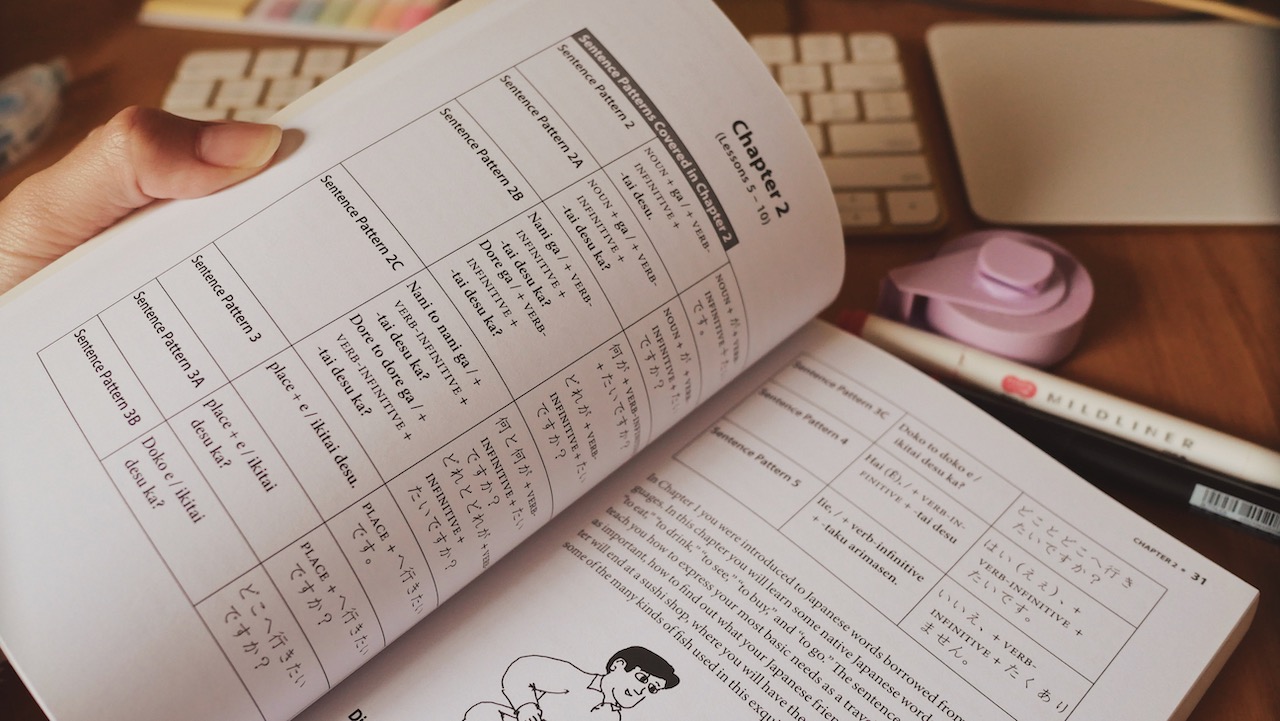 Chapter 2
(Lessons 5 – 10)
Sentence Patterns Covered in Chapter 2
Sentence Pattern 2
NOUN + ga / + VERB-
INFINITIVE +
-tai desu.
NOUN + が + VERB-
INFINITIVE + たい
です。
Sentence Pattern 2A
NOUN + ga / + VERB-
INFINITIVE +
-tai desu ka?
NOUN + が + VERB-
INFINITIVE + たい
ですか?
Sentence Pattern 2B
Nani ga / + VERB-
INFINITIVE +
-tai desu ka?
Dore ga / + VERB-
INFINITIVE +
-tai desu ka?
何が + VERB-INFINITIVE
+ たいですか?
どれが + VERB-
INFINITIVE + たい
ですか?
Sentence Pattern 2C
Nani to nani ga / +
VERB-INFINITIVE +
-tai desu ka?
Dore to dore ga / +
VERB-INFINITIVE +
-tai desu ka?
何と何が + VERB-
INFINITIVE + たい
ですか?
どれとどれが + VERB-
INFINITIVE +
たいですか?
Sentence Pattern 3
place + e / ikitai desu.
PLACE + へ行きたい
です。
Sentence Pattern 3A
place + e / ikitai
desu ka?
PLACE + へ行きたい
ですか?
Sentence Pattern 3B
Doko e / ikitai
desu ka?
どこへ行きたい
ですか?
CHAPTER 2 • 31
Sentence Pattern 3C
Doko to doko e /
ikitai desu ka?
どことどこへ行き
たいですか?
Sentence Pattern 4
Hai (Ē), / + VERB-IN-
FINITIVE + -tai desu
はい (ええ)、+
VERB-INFINITIVE +
たいです。
Sentence Pattern 5
Iie, / + verb-infinitive
+ -taku arimasen.
いいえ、+ VERB-
INFINITIVE + たくあり
ません。
In Chapter 1 you were introduced to Japanese words borrowed from
guages. In this chapter you will learn some native Japanese word
"to eat," "to drink," "to see," "to buy," and "to go." The sentence
teach you how to express your most basic needs as a trav
as important, how to find out what your Japanese frien
ter will end at a sushi shop, where you will have the
some of the many kinds of fish used in this exqu
Di
MILDLINER